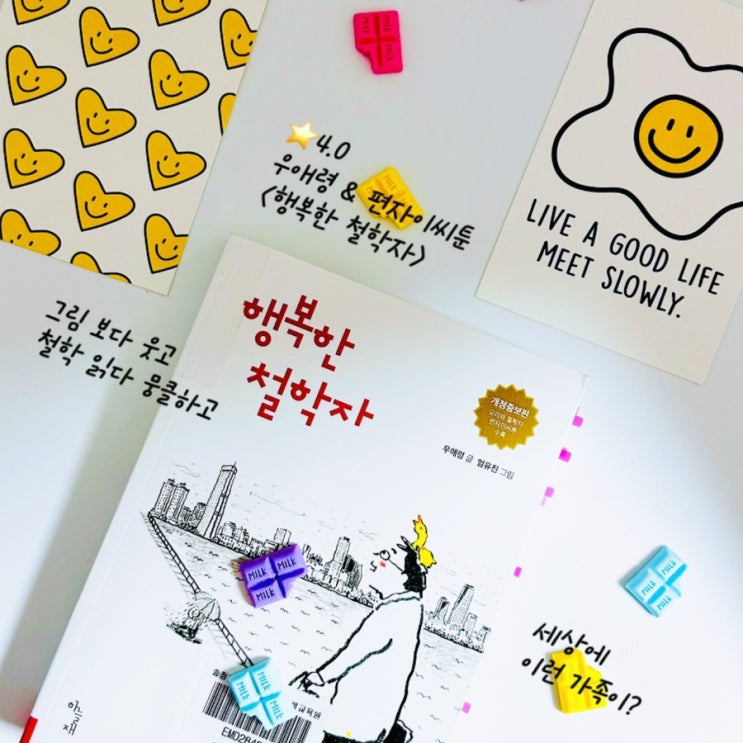 ⭐4.0
우애령 & 편자이씨툰
<행복한 철학자>
LIVE A GOOD LIFE
MEET SLOWLY.
그림 보다 웃고
철학 읽다 뭉클하고
행복한
철학자
개정증보판
우애령 글 엄유진 그림
MILK
MILK
MILK
MILK
MILK
MILK
MILK
MILK
세상에
이런 가족이?
하늘재